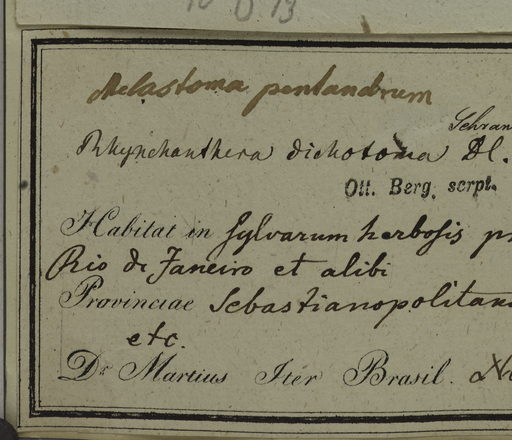 Melastoma pentandrum
Schran
Rhynchanthera dichotoma Dl.
Ott. Berg. scrpt.
Habitat in sylvarum herbosis
Rio de Janeiro et alibi
Provinciae Sebastianopolitan
etc.
Dr Martius Iter Brasil.